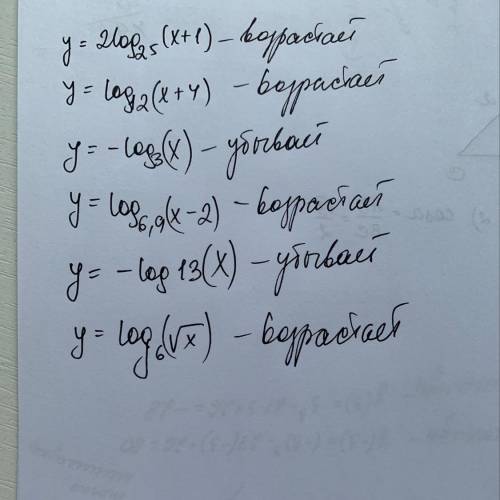 y = 2log₂₅(x+1) – возрастает
y = log₁₂(x+4) – возрастает
y = -log₃(x) – убывает
y = log₆,₉(x-2) – возрастает
y = -log 13(x) – убывает
y = log₆(√x) – возрастает